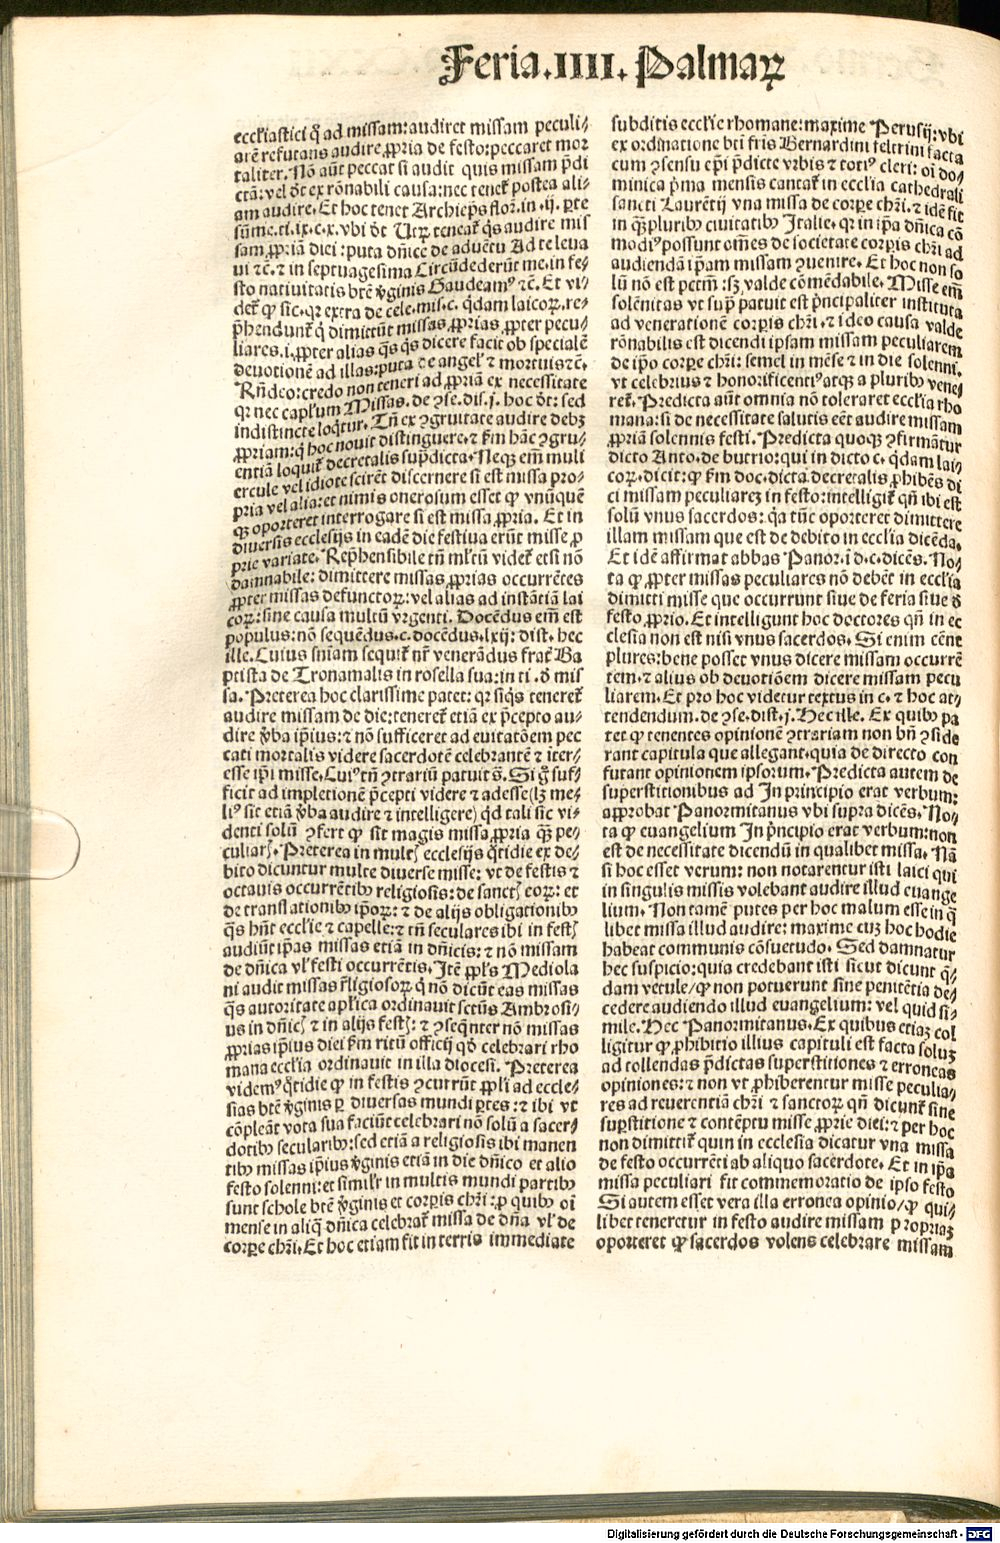 Feria.IIII. Palmaꝝ
eccl'iastici q̄ ad missam: audiret missam peculi⸗
arē refutans audire ꝓpria de festo: peccaret mor
taliter. Nō aūt peccat si audit quis missam p̄di
ctā: vel ðt ex rōnabili causa: nec tenet̄ postea ali⸗
am audire. Et hoc tenet Archiep̄s flor̄. in .ij. ꝑte
sūme. ti. ix. c. x. vbi ðt Utꝝ teneat̄ q̄s audire mis
sam ꝓpriā diei: puta dn̄ice de aduētu Ad te leua
ui ⁊c̄. ⁊ in septuagesima Circūdederūt me. in fe⸗
sto natiuitatis btē v̄ginis Gaudeamꝰ ⁊c̄. Et vi⸗
det̄ ꝙ sic. qꝛ extra de cele. mis. c. q̄dam laicoꝝ. re⸗
p̄hendunt̄ q̄ dimittūt missas ꝓprias ꝓpter pecu⸗
liares. i. ꝓpter alias q̄s q̄s dicere facit ob specialē
deuotionē ad illas: puta de angel' ⁊ mortuis ⁊c̄.
Rn̄deo: credo non teneri ad ꝓpriā ex necessitate
qꝛ nec cap̄l'um Missas. de ꝯse. dis. j. hoc ðt: sed
indistincte loq̄tur. Tn̄ ex ꝯgruitate audire debꝫ
ꝓpriam: q̄ hoc nouit distinguere. ⁊ k̄m hāc ꝯgru⸗
entiā loquit̄ decretalis sup̄dicta. Neqꝫ em̄ muli
ercule vel idiote scirēt discernere si est missa pro⸗
pria vel alia: et nimis onerosum esset ꝙ vnūquē
qꝫ oporteret interrogare si est missa ꝓpria. Et in
diuersis ecclesijs in eadē die festiua erūt misse ꝓ
prie variate. Rep̄hensibile tn̄ ml'tū videt̄ etsi nō
damnabile: dimittere missas ꝓprias occurrētes
ꝓpter missas defunctoꝝ: vel alias ad instātiā lai
coꝝ: sine causa multū vrgenti. Docēdus em̄ est
populus: nō sequēdus. c. docēdus. lxij: dist. hec
ille. Cuius sn̄iam sequit̄ nr̄ venerādus frat̄ Ba
ptista de Tronamalis in rosella sua: in ti. ð mis
sa. Preterea hoc clarissime patet: qꝛ siq̄s teneret̄
audire missam de die: teneret̄ etiā ex p̄cepto au⸗
dire v̄ba ip̄ius: ⁊ nō sufficeret ad euitatōem pec
cati mortalis videre sacerdotē celebrantē ⁊ īter⸗
esse ip̄i misse. Cuiꝰ tn̄ ꝯtrariū patuit s̄. Si g̊ suf⸗
ficit ad impletionē p̄cepti videre ⁊ adesse (lꝫ me⸗
liꝰ sit etiā v̄ba audire ⁊ intelligere) qd̄ tali sic vi⸗
denti solū ꝯfert ꝙ sit magis missa ꝓpria qꝫ̄ pe⸗
culiarꝭ. Preterea in multꝭ ecclesijs q̄tidie ex de⸗
bito dicuntur multe diuerse misse: vt de festis ⁊
octauis occurrētibꝫ religiosis: de sanctꝭ eoꝝ: et
de translationibꝫ ip̄oꝝ: ⁊ de alijs obligationibꝫ
q̄s hn̄t eccl'ie ⁊ capelle: ⁊ tn̄ seculares ibi in festꝭ
audiūt ip̄as missas etiā in dn̄icis: ⁊ nō missam
de dn̄ica vl' festi occurrētis. Itē ppl's Mediola
ni audit missas r̄ligiosoꝝ q̄ nō dicūt eas missas
q̄s autoritate apl'ica ordinauit sctūs Ambrosi⸗
us in dn̄icꝭ ⁊ in alijs festꝭ: ⁊ ꝯseq̄nter nō missas
ꝓprias ip̄ius diei k̄m ritū officij qð celebrari rho
mana eccl'ia ordinauit in illa diocesi. Preterea
videmꝰ q̄tidie ꝙ in festis ꝯcurrūt ppl'i ad eccle⸗
sias btē v̄ginis ꝑ diuersas mundi ꝑtes: ⁊ ibi vt
cōpleāt vota sua faciūt celebrari nō solū a sacer⸗
dotibꝫ secularibꝫ: sed etiā a religiosis ibi manen
tibꝫ missas ip̄ius v̄ginis etiā in die dn̄ico et alio
festo solenni: et simil'r in multis mundi partibꝫ
sunt schole btē v̄ginis et corꝑis chr̄i: ꝓ quibꝫ oī
mense in aliq̄ dn̄ica celebrat̄ missa de dn̄a vl' de
corꝑe chr̄i. Et hoc etiam fit in terris immediate
subditis eccl'ie rhomane: maxime Perusij: vbi
ex ordinatione bt̄i fr̄is Bernardini feltrini facta
cum ꝯsensu ep̄i p̄dicte vrbis ⁊ totiꝰ cleri: oī do⸗
minica p̄ma mensis cantat̄ in eccl'ia cathedrali
sancti Laurētij vna missa de corꝑe chr̄i. ⁊ idē fit
in qꝫ̄pluribꝰ ciuitatibꝫ Italie. qꝛ in ip̄a dn̄ica cō
modiꝰ possunt om̄es de societate corꝑis chr̄i ad
audiendā ip̄am missam ꝯuenire. Et hoc non so
lū nō est pctm̄: sꝫ valde cōmēdabile. Misse em̄
solēnitas vt sup̄ patuit est p̄ncipaliter instituta
ad venerationē corꝑis chr̄i. ⁊ ideo causa valde
rōnabilis est dicendi ipsam missam peculiarem
de ip̄o corꝑe chr̄i: semel in mēse ⁊ in die solenni.
vt celebrius ⁊ honorificentiꝰ atqꝫ a pluribꝫ vene⸗
ret̄. Predicta aūt omnia nō toleraret eccl'ia rho
mana: si de necessitate salutis eēt audire missam
ꝓpriā solennis festi. Predicta quoqꝫ ꝯfirmātur
dicto Anto. de butrio: qui in dicto c. q̄dam lai⸗
coꝝ. dicit: ꝙ k̄m doc. dicta decretalis ꝓhibēs di
ci missam peculiareꝫ in festo: intelligit̄ qn̄ ibi est
solū vnus sacerdos: qꝛ tūc oporteret dimittere
illam missam que est de debito in eccl'ia dicēda.
Et idē affirmat abbas Panor. ī d. c. dicēs. No⸗
ta ꝙ ꝓpter missas peculiares nō debēt in eccl'ia
dimitti misse que occurrunt siue de feria siue ð
festo ꝓprio. Et intelligunt hoc doctores qn̄ in ec
clesia non est nisi vnus sacerdos. Si enim cēnt
plures: bene posset vnus dicere missam occurrē
tem. ⁊ alius ob deuotiōem dicere missam pecu
liarem. Et pro hoc videtur textus in c. ⁊ hoc at⸗
tendendum. de ꝯse. dist. j. Hec ille. Ex quibꝫ pa
tet ꝙ tenentes opinionē ꝯtrariam non bn̄ ꝯside
rant capitula que allegant. quia de directo con
futant opinionem ipsorum. Predicta autem de
superstitionibus ad In principio erat verbum:
approbat Panormitanus vbi supra dicēs. No⸗
ta ꝙ euangelium In p̄ncipio erat verbum: non
est de necessitate dicendū in qualibet missa. Nā
si hoc esset verum: non notarentur isti laici qui
in singulis missis volebant audire illud euange
lium. Non tamē putes per hoc malum esse in q̄
libet missa illud audire: maxime cuꝫ hoc hodie
habeat communis cōsuetudo. Sed damnatur
hec suspicio: quia credebant isti sicut dicunt q̄⸗
dam vetule/ ꝙ non potuerunt sine penitētia de⸗
cedere audiendo illud euangelium: vel quid si⸗
mile. Hec Panormitanus. Ex quibus etiaꝫ col
ligitur ꝙ ꝓhibitio illius capituli est facta soluꝫ
ad tollendas p̄dictas superstitiones ⁊ erroneas
opiniones: ⁊ non vt ꝓhiberentur misse peculia⸗
res ad reuerentiā chr̄i ⁊ sanctoꝝ qn̄ dicunt̄ sine
suꝑstitione ⁊ contēptu misse ꝓprie diei: ⁊ per hoc
non dimittit̄ quin in ecclesia dicatur vna missa
de festo occurrēti ab aliquo sacerdote. Et in ip̄a
missa peculiari fit commemoratio de ipso festo
Si autem esset vera illa erronea opinio/ ꝙ qui⸗
libet teneretur in festo audire missam propriaꝫ
oporteret ꝙ sacerdos volens celebrare missam
Digitalisierung gefördert durch die Deutsche Forschungsgemeinschaft - DFG